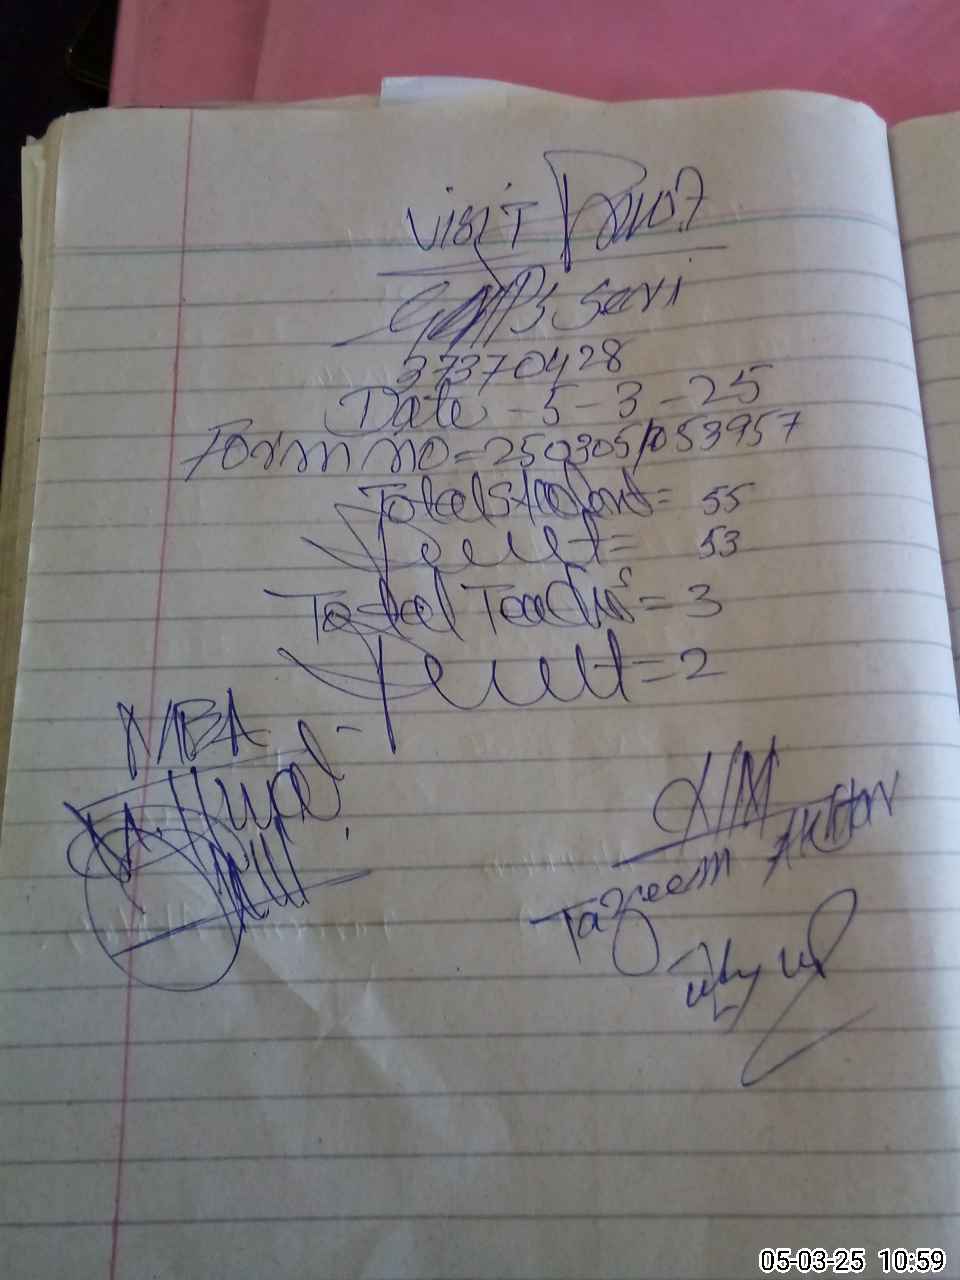 Visit
GMPS Sarri
37370428
Date - 5-3-25
Form no = 250305/053957
Total Student = 55
53
Total Teacher = 3
= 2
MBA
H/M
Tazeem Akhtar
05-03-25 10:59